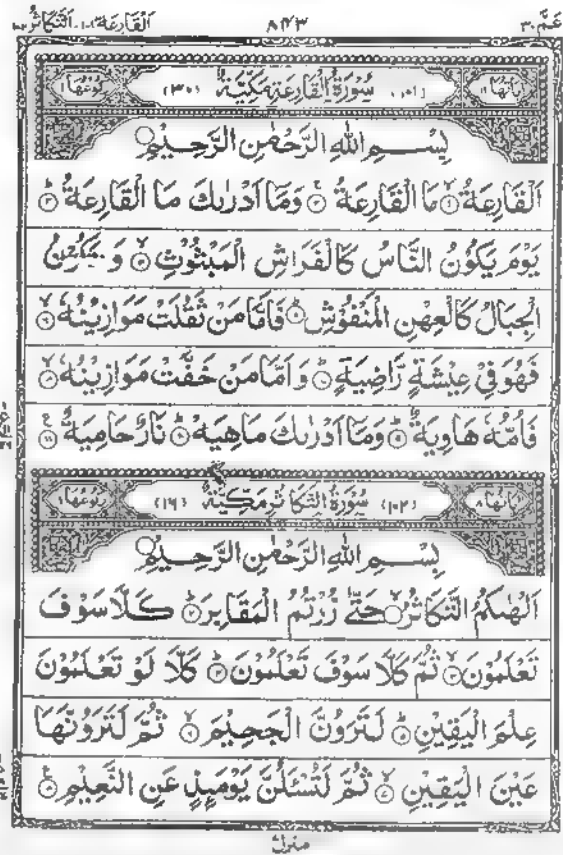 عَمَّ ٣٠ ٨٤٣ اَلْقَارِعَة ١٠١، اَلتَّكَاثُر ١٠٢
اٰيَاتُهَا ١١ (١٠١) سُوْرَةُ الْقَارِعَةِ مَكِّيَّةٌ (٣٠) رُكُوْعُهَا ١
بِسْمِ اللّٰهِ الرَّحْمٰنِ الرَّحِيْمِ
اَلْقَارِعَةُ ۙ﴿١﴾ مَا الْقَارِعَةُ ۚ﴿٢﴾ وَمَاۤ اَدْرٰىكَ مَا الْقَارِعَةُ ؕ﴿٣﴾
يَوْمَ يَكُوْنُ النَّاسُ كَالْفَرَاشِ الْمَبْثُوْثِ ۙ﴿٤﴾ وَ تَكُوْنُ
الْجِبَالُ كَالْعِهْنِ الْمَنْفُوْشِ ؕ﴿٥﴾ فَاَمَّا مَنْ ثَقُلَتْ مَوَازِيْنُهٗ ۙ﴿٦﴾
فَهُوَ فِيْ عِيْشَةٍ رَّاضِيَةٍ ؕ﴿٧﴾ وَ اَمَّا مَنْ خَفَّتْ مَوَازِيْنُهٗ ۙ﴿٨﴾
فَاُمُّهٗ هَاوِيَةٌ ؕ﴿٩﴾ وَمَاۤ اَدْرٰىكَ مَاهِيَهْ ؕ﴿١٠﴾ نَارٌ حَامِيَةٌ ۧ﴿١١﴾
اٰيَاتُهَا ٨ (١٠٢) سُوْرَةُ التَّكَاثُرِ مَكِّيَّةٌ (١٦) رُكُوْعُهَا ١
بِسْمِ اللّٰهِ الرَّحْمٰنِ الرَّحِيْمِ
اَلْهٰىكُمُ التَّكَاثُرُ ۙ﴿١﴾ حَتّٰى زُرْتُمُ الْمَقَابِرَ ؕ﴿٢﴾ كَلَّا سَوْفَ
تَعْلَمُوْنَ ۙ﴿٣﴾ ثُمَّ كَلَّا سَوْفَ تَعْلَمُوْنَ ؕ﴿٤﴾ كَلَّا لَوْ تَعْلَمُوْنَ
عِلْمَ الْيَقِيْنِ ؕ﴿٥﴾ لَتَرَوُنَّ الْجَحِيْمَ ۙ﴿٦﴾ ثُمَّ لَتَرَوُنَّهَا
عَيْنَ الْيَقِيْنِ ۙ﴿٧﴾ ثُمَّ لَتُسْـَٔلُنَّ يَوْمَىِٕذٍ عَنِ النَّعِيْمِ ۧ﴿٨﴾
منزل